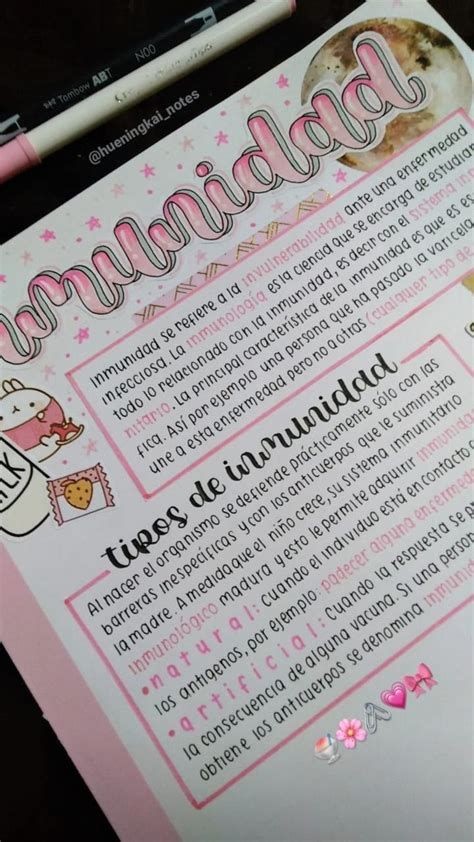 Tombow ABT
N00
@hueningkai_notes
inmunidad
Inmunidad se refiere a la invulnerabilidad ante una enfermedad
infecciosa. La inmunología es la ciencia que se encarga de estudiar
todo lo relacionado con la inmunidad, es decir con el sistema inmu
nitario. La principal característica de la inmunidad es que es es
fica. Así por ejemplo una persona que ha pasado la varicela
une a esta enfermedad pero no a otras (cualquier tipo de
tipos de inmunidad
Al nacer el organismo se defiende prácticamente sólo con las
barreras inespecíficas y con los anticuerpos que le suministra
la madre. A medida que el niño crece, su sistema inmunitario
inmunológico madura y esto le permite adquirir inmunida
• natural: Cuando el individuo está en contacto
los antígenos, por ejemplo: padecer alguna enfermeda
• artificial: Cuando la respuesta se
la consecuencia de alguna vacuna. Si una person
obtiene los anticuerpos se denomina inmunid
MILK